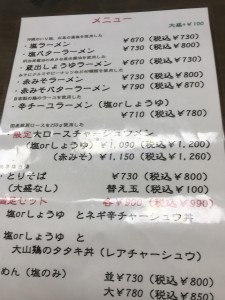 メニュー
大盛＋￥100
・塩ラーメン ￥670(税込￥730)
・塩バターラーメン ￥730(税込￥800)
・夏出しょうゆラーメン ￥670(税込￥730)
・赤みそラーメン ￥730(税込￥800)
・赤みそバターラーメン ￥790(税込￥870)
・辛チーユラーメン(塩orしょうゆ)
￥710(税込￥780)
限定大ロースチャーシュウメン
(塩orしょうゆ)￥1,090(税込￥1,200)
(赤みそ)￥1,150(税込￥1,260)
・とりそば ￥730(税込￥800)
(大盛なし) 替え玉(税込￥100)
限定セット 各￥900(税込￥990)
塩orしょうゆ とネギ辛チャーシュウ丼
・塩orしょうゆ と
大山鶏のタタキ丼(レアチャーシュウ)
めん(塩のみ) 並￥730(税込￥800)
大￥780(税込￥850)